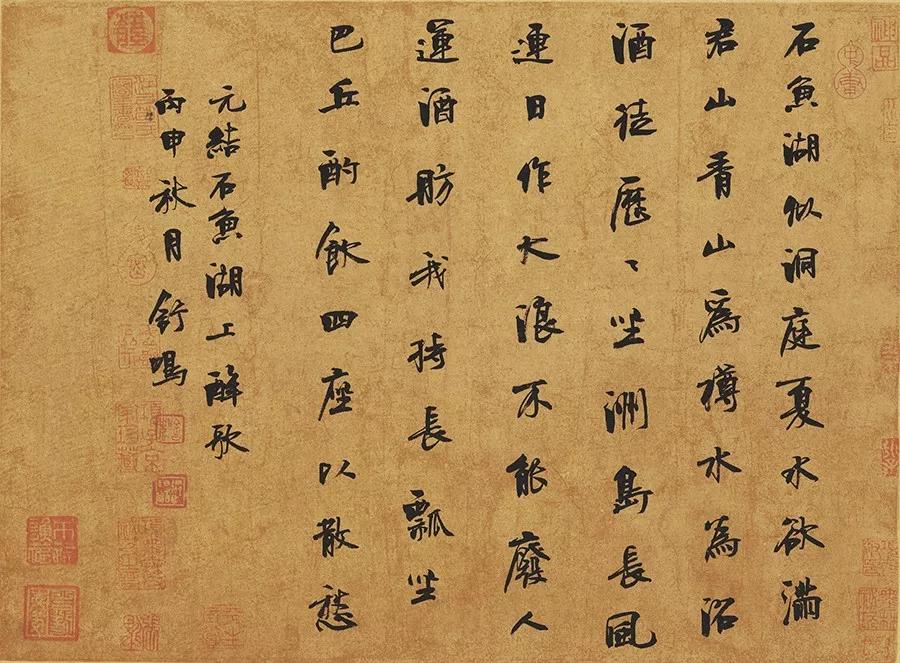 石魚湖似洞庭夏水欲滿
君山青山爲樽水為沼
酒徒歷々坐洲島長風
連日作大浪不能廢人
運酒舫我持長瓢坐
巴丘酌飲四座以散愁
元結石魚湖上醉歌
丙申秋月舒鳴